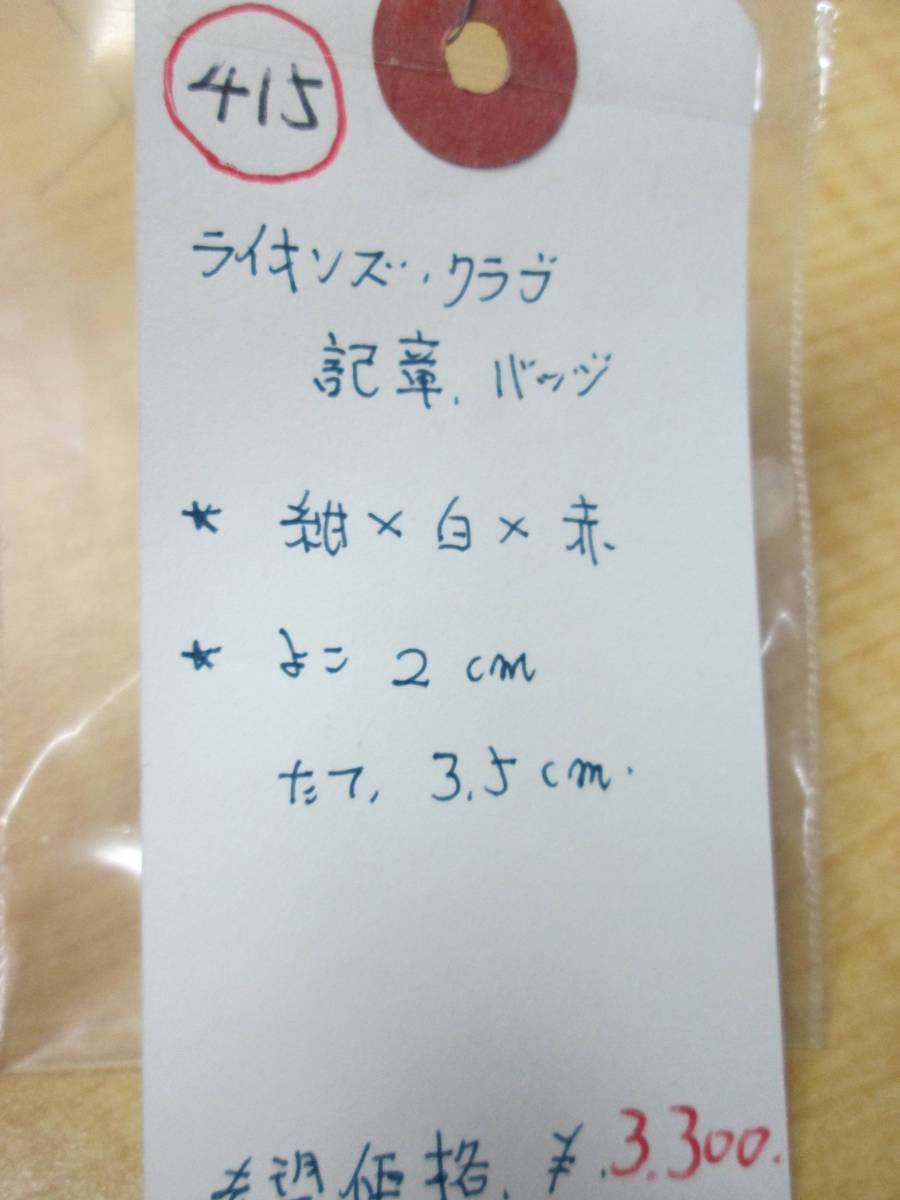 415
ライオンズ・クラブ
記章.バッジ
★ 紺×白×赤.
★ よこ 2cm
たて, 3.5cm.
希望価格.¥.3.300.